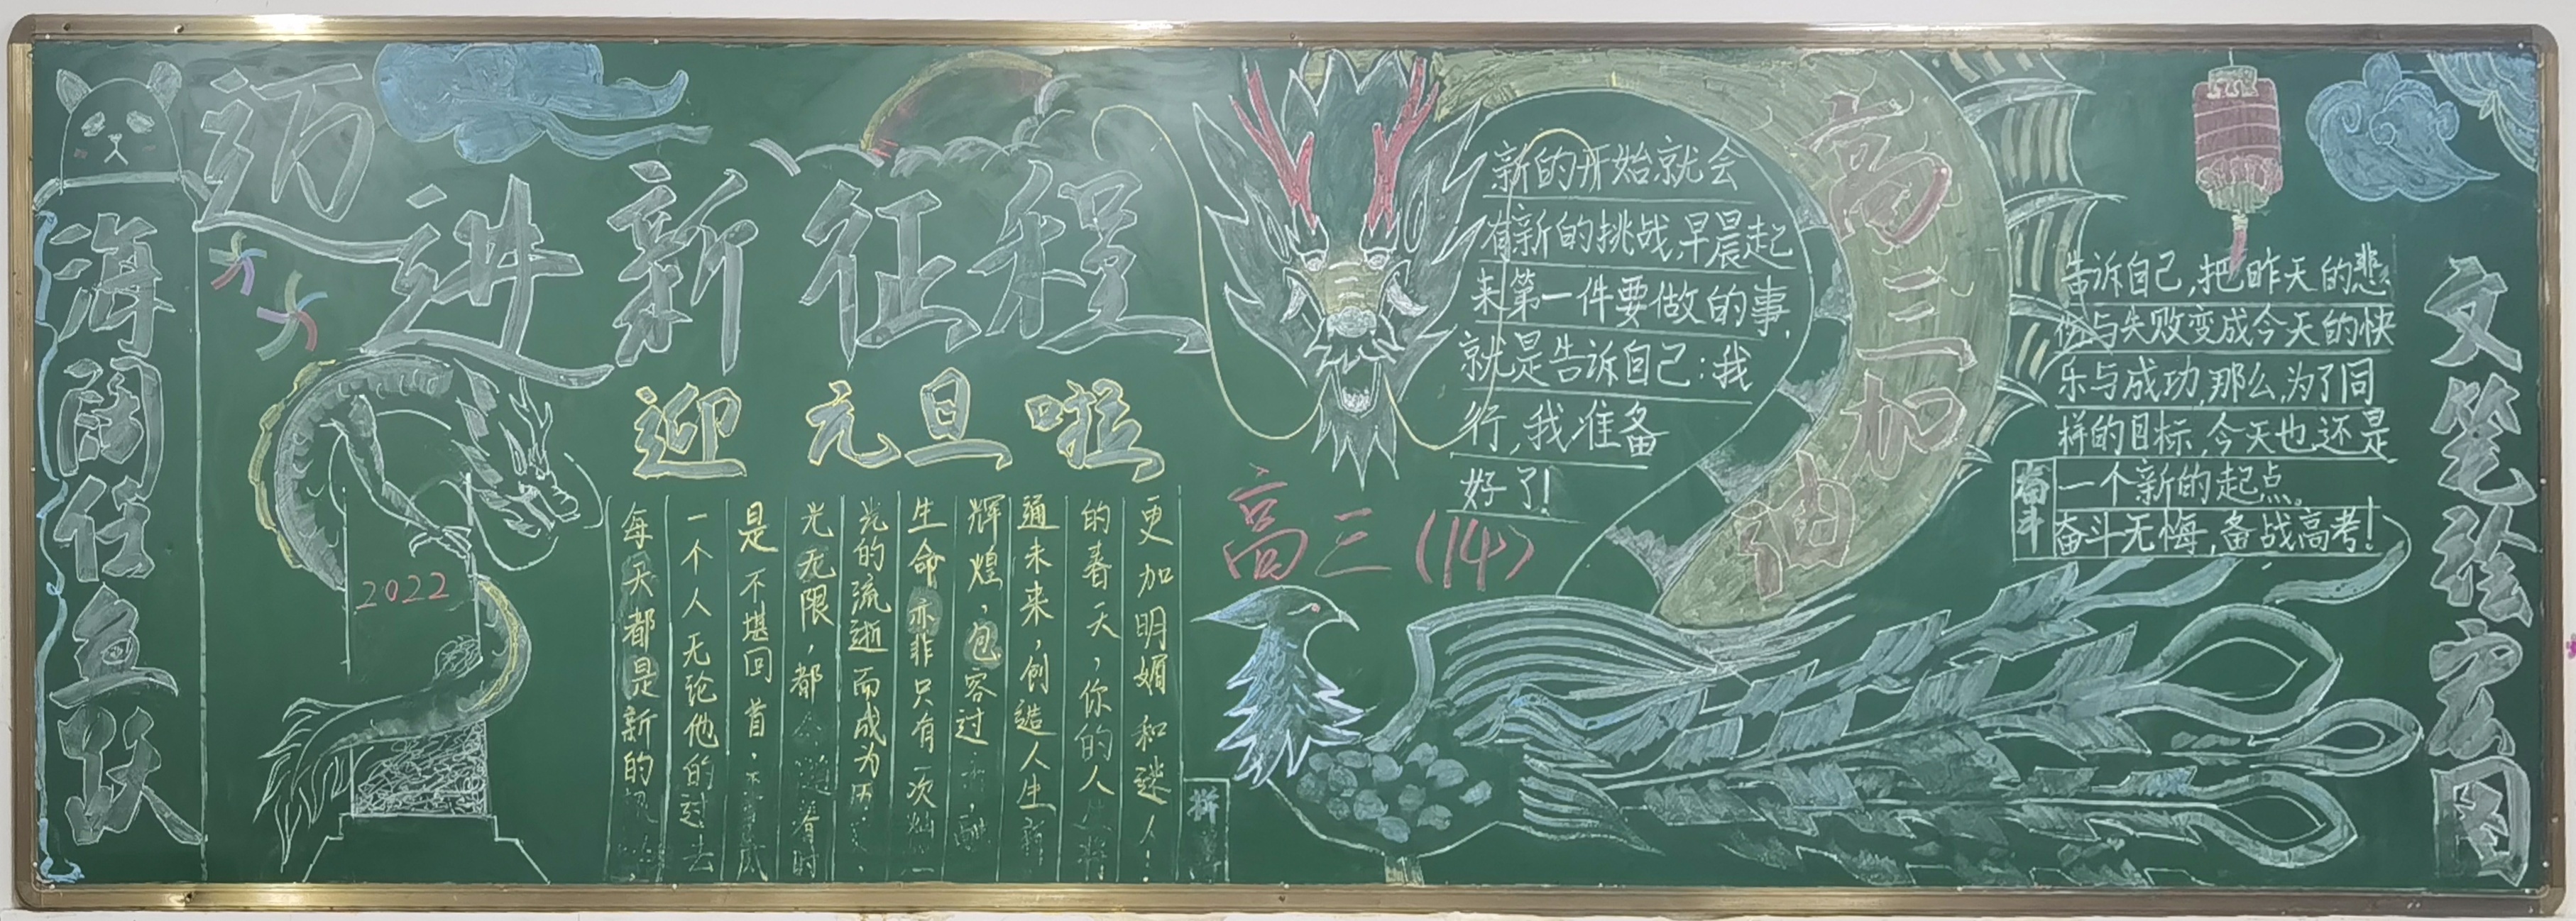 迈进新征程
海阔任鱼跃
迎元旦啦
2022
每天都是新的
一个人无论他的过去
是不堪回首,
光无限,都有时
光的流逝而成为历
生命亦非只有一次灿
辉煌,包容过
通未来,创造人生新
的春天,你的人
更加明媚和谜人!
拼
高三(14)
新的开始就会
有新的挑战,早晨起
来第一件要做的事,
就是告诉自己:我
行,我准备
好了!
高三加油
告诉自己,把昨天的悲
伤与失败变成今天的快
乐与成功,那么,为了同
样的目标,今天也还是
一个新的起点。
奋斗
奋斗无悔,备战高考!
文笔绘宏图